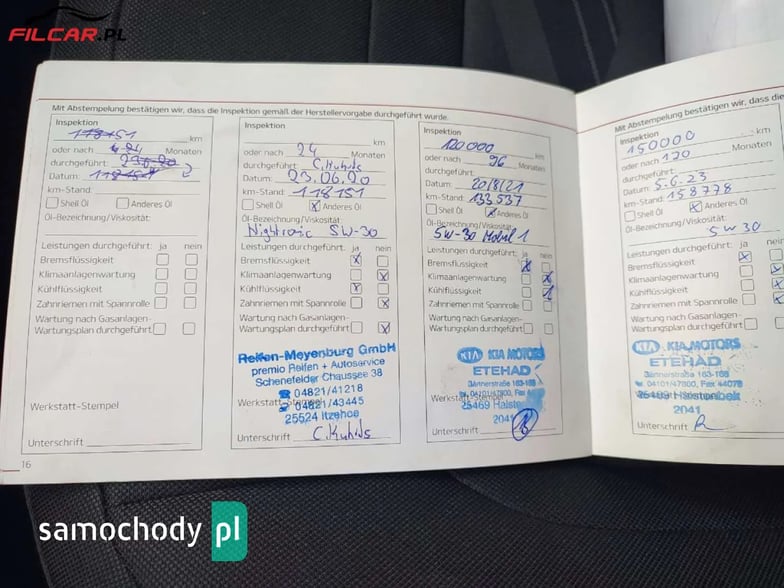 FILCAR.PL
Mit Abstempelung bestätigen wir, dass die Inspektion gemäß der Herstellervorgabe durchgeführt wurde.
Inspektion
118151 km
oder nach 24 Monaten
durchgeführt: 23.06.20
Datum: 118151
km-Stand:
Shell Öl Anderes Öl
Öl-Bezeichnung/Viskosität:
Leistungen durchgeführt: ja nein
Bremsflüssigkeit
Klimaanlagenwartung
Kühlflüssigkeit
Zahnriemen mit Spannrolle
Wartung nach Gasanlagen-
Wartungsplan durchgeführt
Werkstatt-Stempel
Unterschrift
16
Inspektion
km
oder nach 24 Monaten
durchgeführt: C. Kuhds
Datum: 23.06.20
km-Stand: 118151
Shell Öl X Anderes Öl
Öl-Bezeichnung/Viskosität:
5W-30
Leistungen durchgeführt: ja nein
Bremsflüssigkeit X
Klimaanlagenwartung X
Kühlflüssigkeit X
Zahnriemen mit Spannrolle X
Wartung nach Gasanlagen-
Wartungsplan durchgeführt X
Reifen-Meyenburg GmbH
premio Reifen + Autoservice
Schenefelder Chaussee 38
☎ 04821/41218
04821/43445
Werkstatt-Stempel
25524 Itzehoe
Unterschrift C. Kuhds
Inspektion
120000 km
oder nach 96 Monaten
durchgeführt:
Datum: 20/8/21
km-Stand: 133537
Shell Öl X Anderes Öl
Öl-Bezeichnung/Viskosität:
5W-30 Mobil 1
Leistungen durchgeführt: ja nein
Bremsflüssigkeit X
Klimaanlagenwartung X
Kühlflüssigkeit X
Zahnriemen mit Spannrolle
Wartung nach Gasanlagen-
Wartungsplan durchgeführt
KIA KIA MOTORS
ETEHAD
Werkstatt-Stempel
25469 Halstenbek
2041
Unterschrift
Mit Abstempelung bestätigen wir, dass die
Inspektion
150000 km
oder nach 120 Monaten
durchgeführt:
Datum: 5.6.23
km-Stand: 158778
Shell Öl X Anderes Öl
Öl-Bezeichnung/Viskosität:
5W30
Leistungen durchgeführt: ja nein
Bremsflüssigkeit X
Klimaanlagenwartung X
Kühlflüssigkeit X
Zahnriemen mit Spannrolle X
Wartung nach Gasanlagen-
Wartungsplan durchgeführt
KIA KIA MOTORS
ETEHAD
Tel. 04101/47800, Fax 44078
25469 Halstenbek
2041
Unterschrift
samochody pl